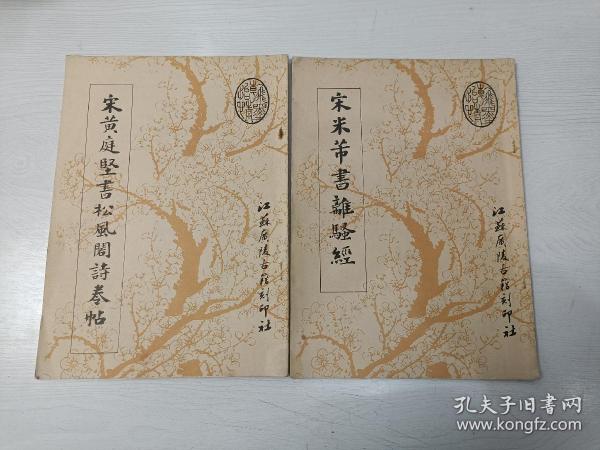 宋黄庭堅書松風閣詩卷帖
江蘇廣陵古籍刻印社
宋米芾書離騷經
江蘇廣陵古籍刻印社
孔夫子旧书网
www.kongfz.com